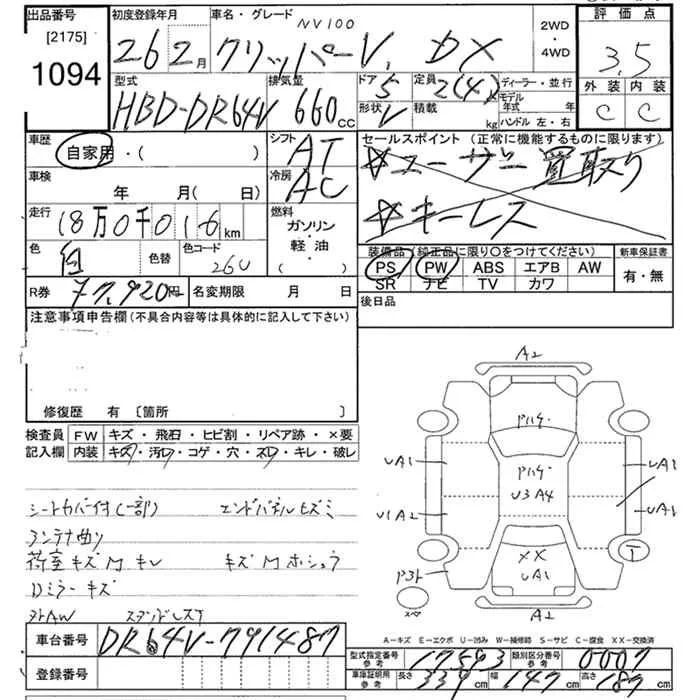 出品番号 初度登録年月 車名・グレード NV100 2WD 評価点
[2175] 26 2月 クリッパーV. DX ・4WD 3.5
1094 型式 排気量 ドア 定員 ディーラー・並行 外装 内装
HBD-DR64V 660cc 5 2(4)人 モデル年式 年 C C
形状 V 積載 kg ハンドル 左・右
車歴 シフト セールスポイント (正常に機能するものに限ります)
自家用・( ) AT ☆ユーザー買取り
車検 冷房
年 月( 日) AC ☆キーレス
走行 燃料
18万0千016km ガソリン
色 色替 色コード ・軽油・ 装備品(純正品に限り○をつけてください) 新車保証書
白 26U ( ) PS PW ABS エアB AW 有・無
R券 77,920円 名変期限 月 日 SR ナビ TV カワ
注意事項申告欄(不具合内容等は具体的に記入して下さい) 後日品
修復歴 有 [箇所 ]
検査員 FW キズ・飛石・ヒビ割・リペア跡・×要
記入欄 内装 キズ・汚れ・コゲ・穴・スレ・キレ・破レ
A2
Pハゲ・
UA1 Pハゲ・ UA1
U3A4
U1A2 UA1
XX T
UA1
スペア A2
シートカバー付(一部) エンドパネルヒズミ
アンテナ曲り
荷室キズM キレ キズMホシュウ
Dミラーキズ
外AW
A-キズ E-エクボ U-凹み W-補修跡 S-サビ C-腐食 XX-交換済
車台番号 DR64V-791487
登録番号
型式指定番号 参考 17593 類別区分番号 参考 0007
車庫証明用 参考 長さ 339cm 幅 147cm 高さ 187cm